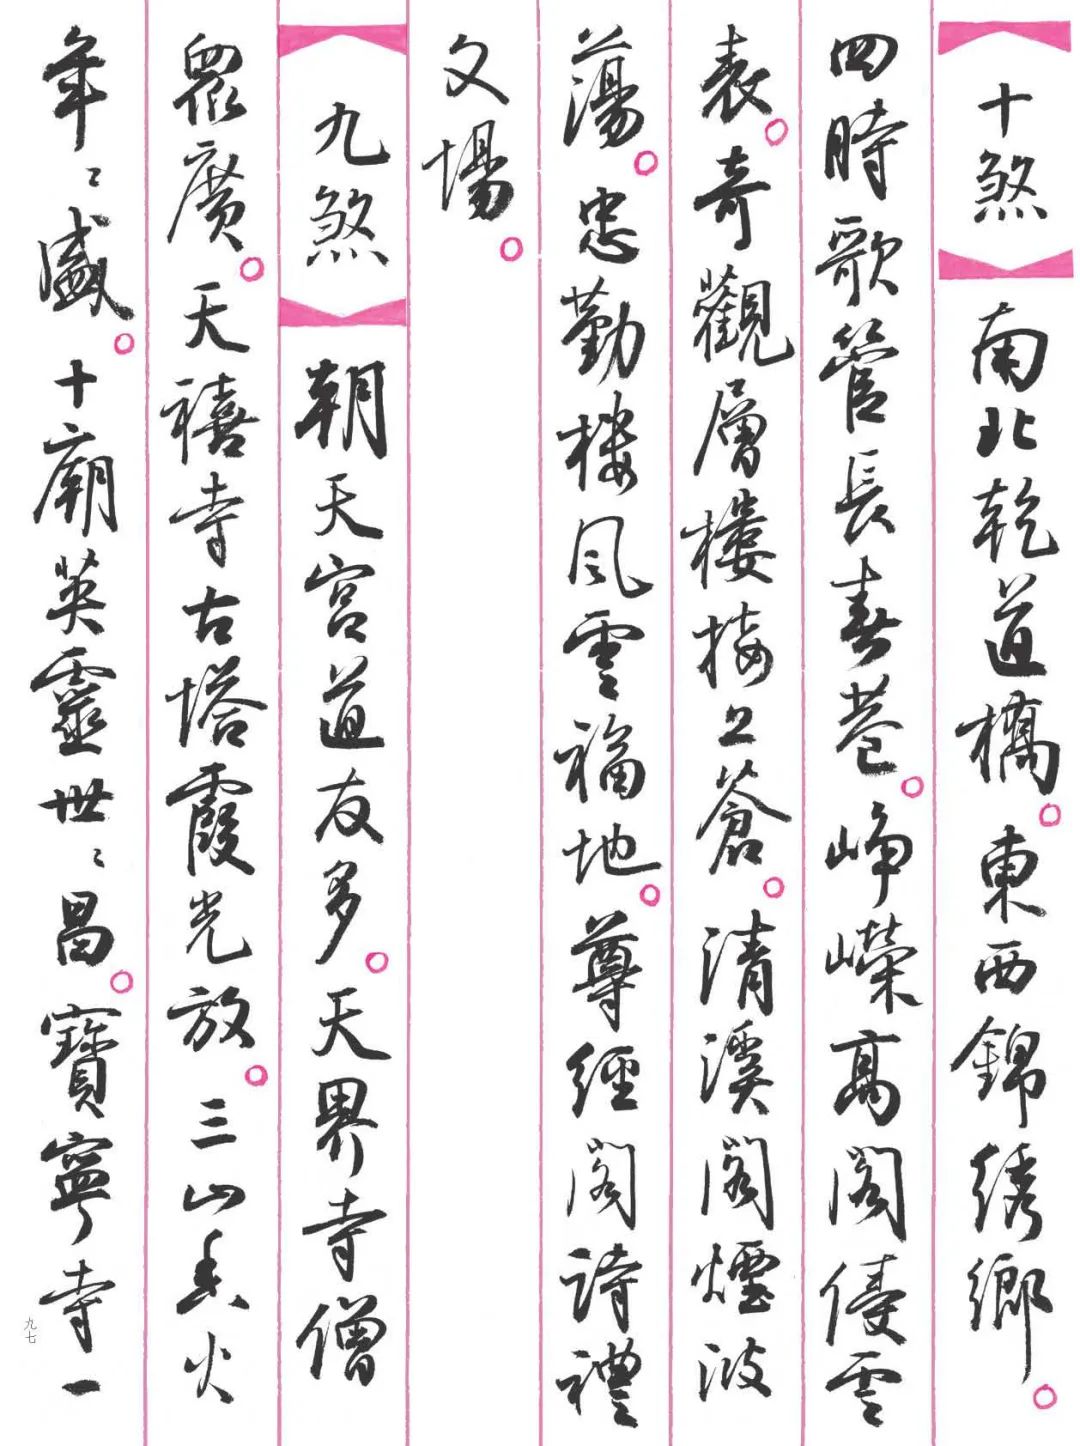 十煞 南北乾道橋。東西錦綉鄉。
四時歌管長春巷。崢嶸高閣倚雲
表。奇觀層樓接上蒼。清溪閣煙波
蕩。忠勤樓風雲福地。尊經閣詩禮
文場。
九煞 朝天宮道友多。天界寺僧
眾廣。天禧寺古塔霞光放。三山香火
年〻盛。十廟英靈世〻昌。寶寧寺一
九七